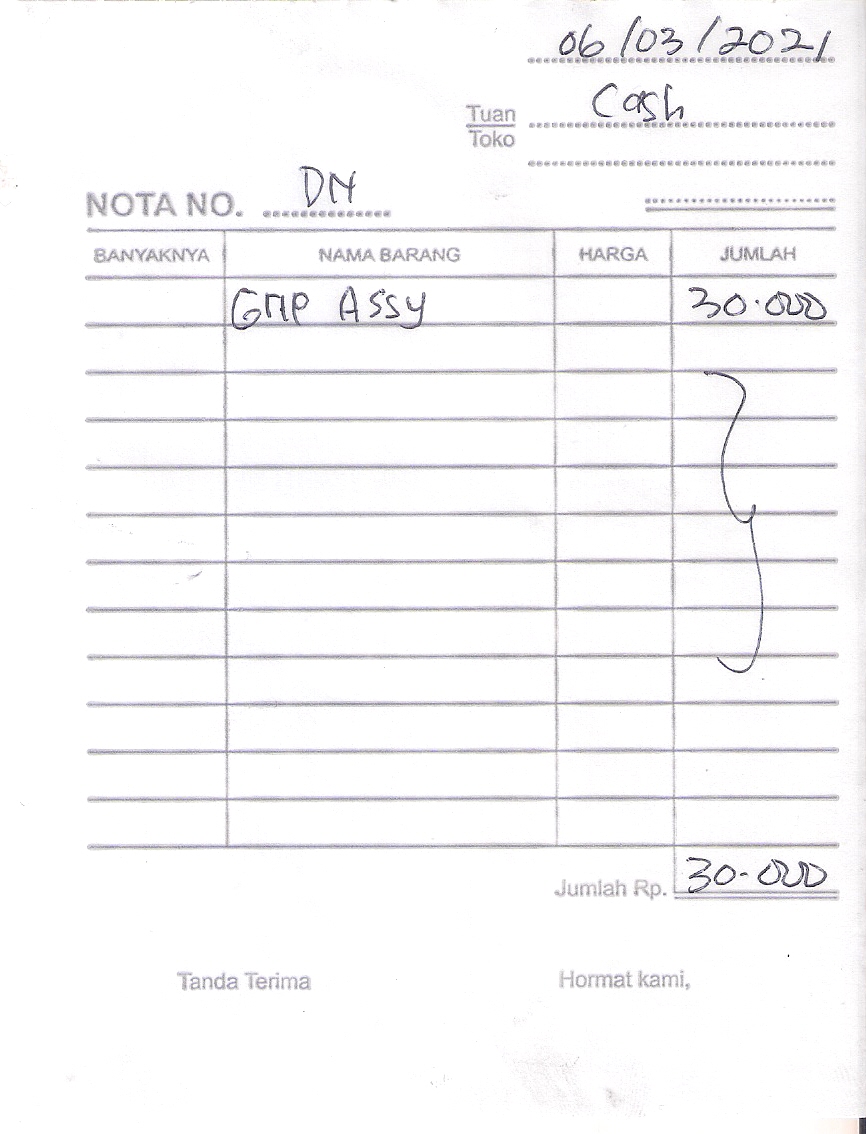 06/03/2021
Tuan Cash
Toko
NOTA NO. DN
BANYAKNYA NAMA BARANG HARGA JUMLAH
GMP ASSY 30.000
Jumlah Rp. 30.000
Tanda Terima Hormat kami,